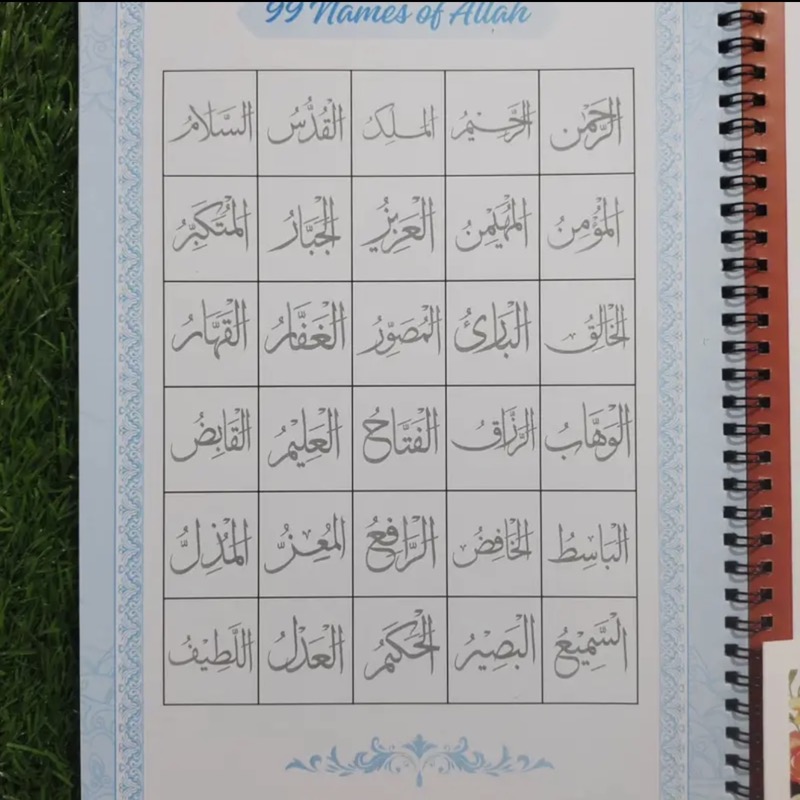 99 Names of Allah
الرَّحْمٰن الرَّحِيْمُ الملِکُ القُدُّسُ السَّلَامُ
المُؤْمِنُ المُهَيْمِنُ العَزِيْزُ الجَبَّارُ المُتَكَبِّرُ
الخَالِقُ البَارِئُ المُصَوِّرُ الغَفَّارُ القَهَّارُ
الوَهَّابُ الرَّزَّاقُ الفَتَّاحُ العَلِيْمُ القَابِضُ
البَاسِطُ الخَافِضُ الرَّافِعُ المُعِزُّ المُذِلُّ
السَّمِيْعُ البَصِيْرُ الحَكَمُ العَدْلُ اللَّطِيْفُ